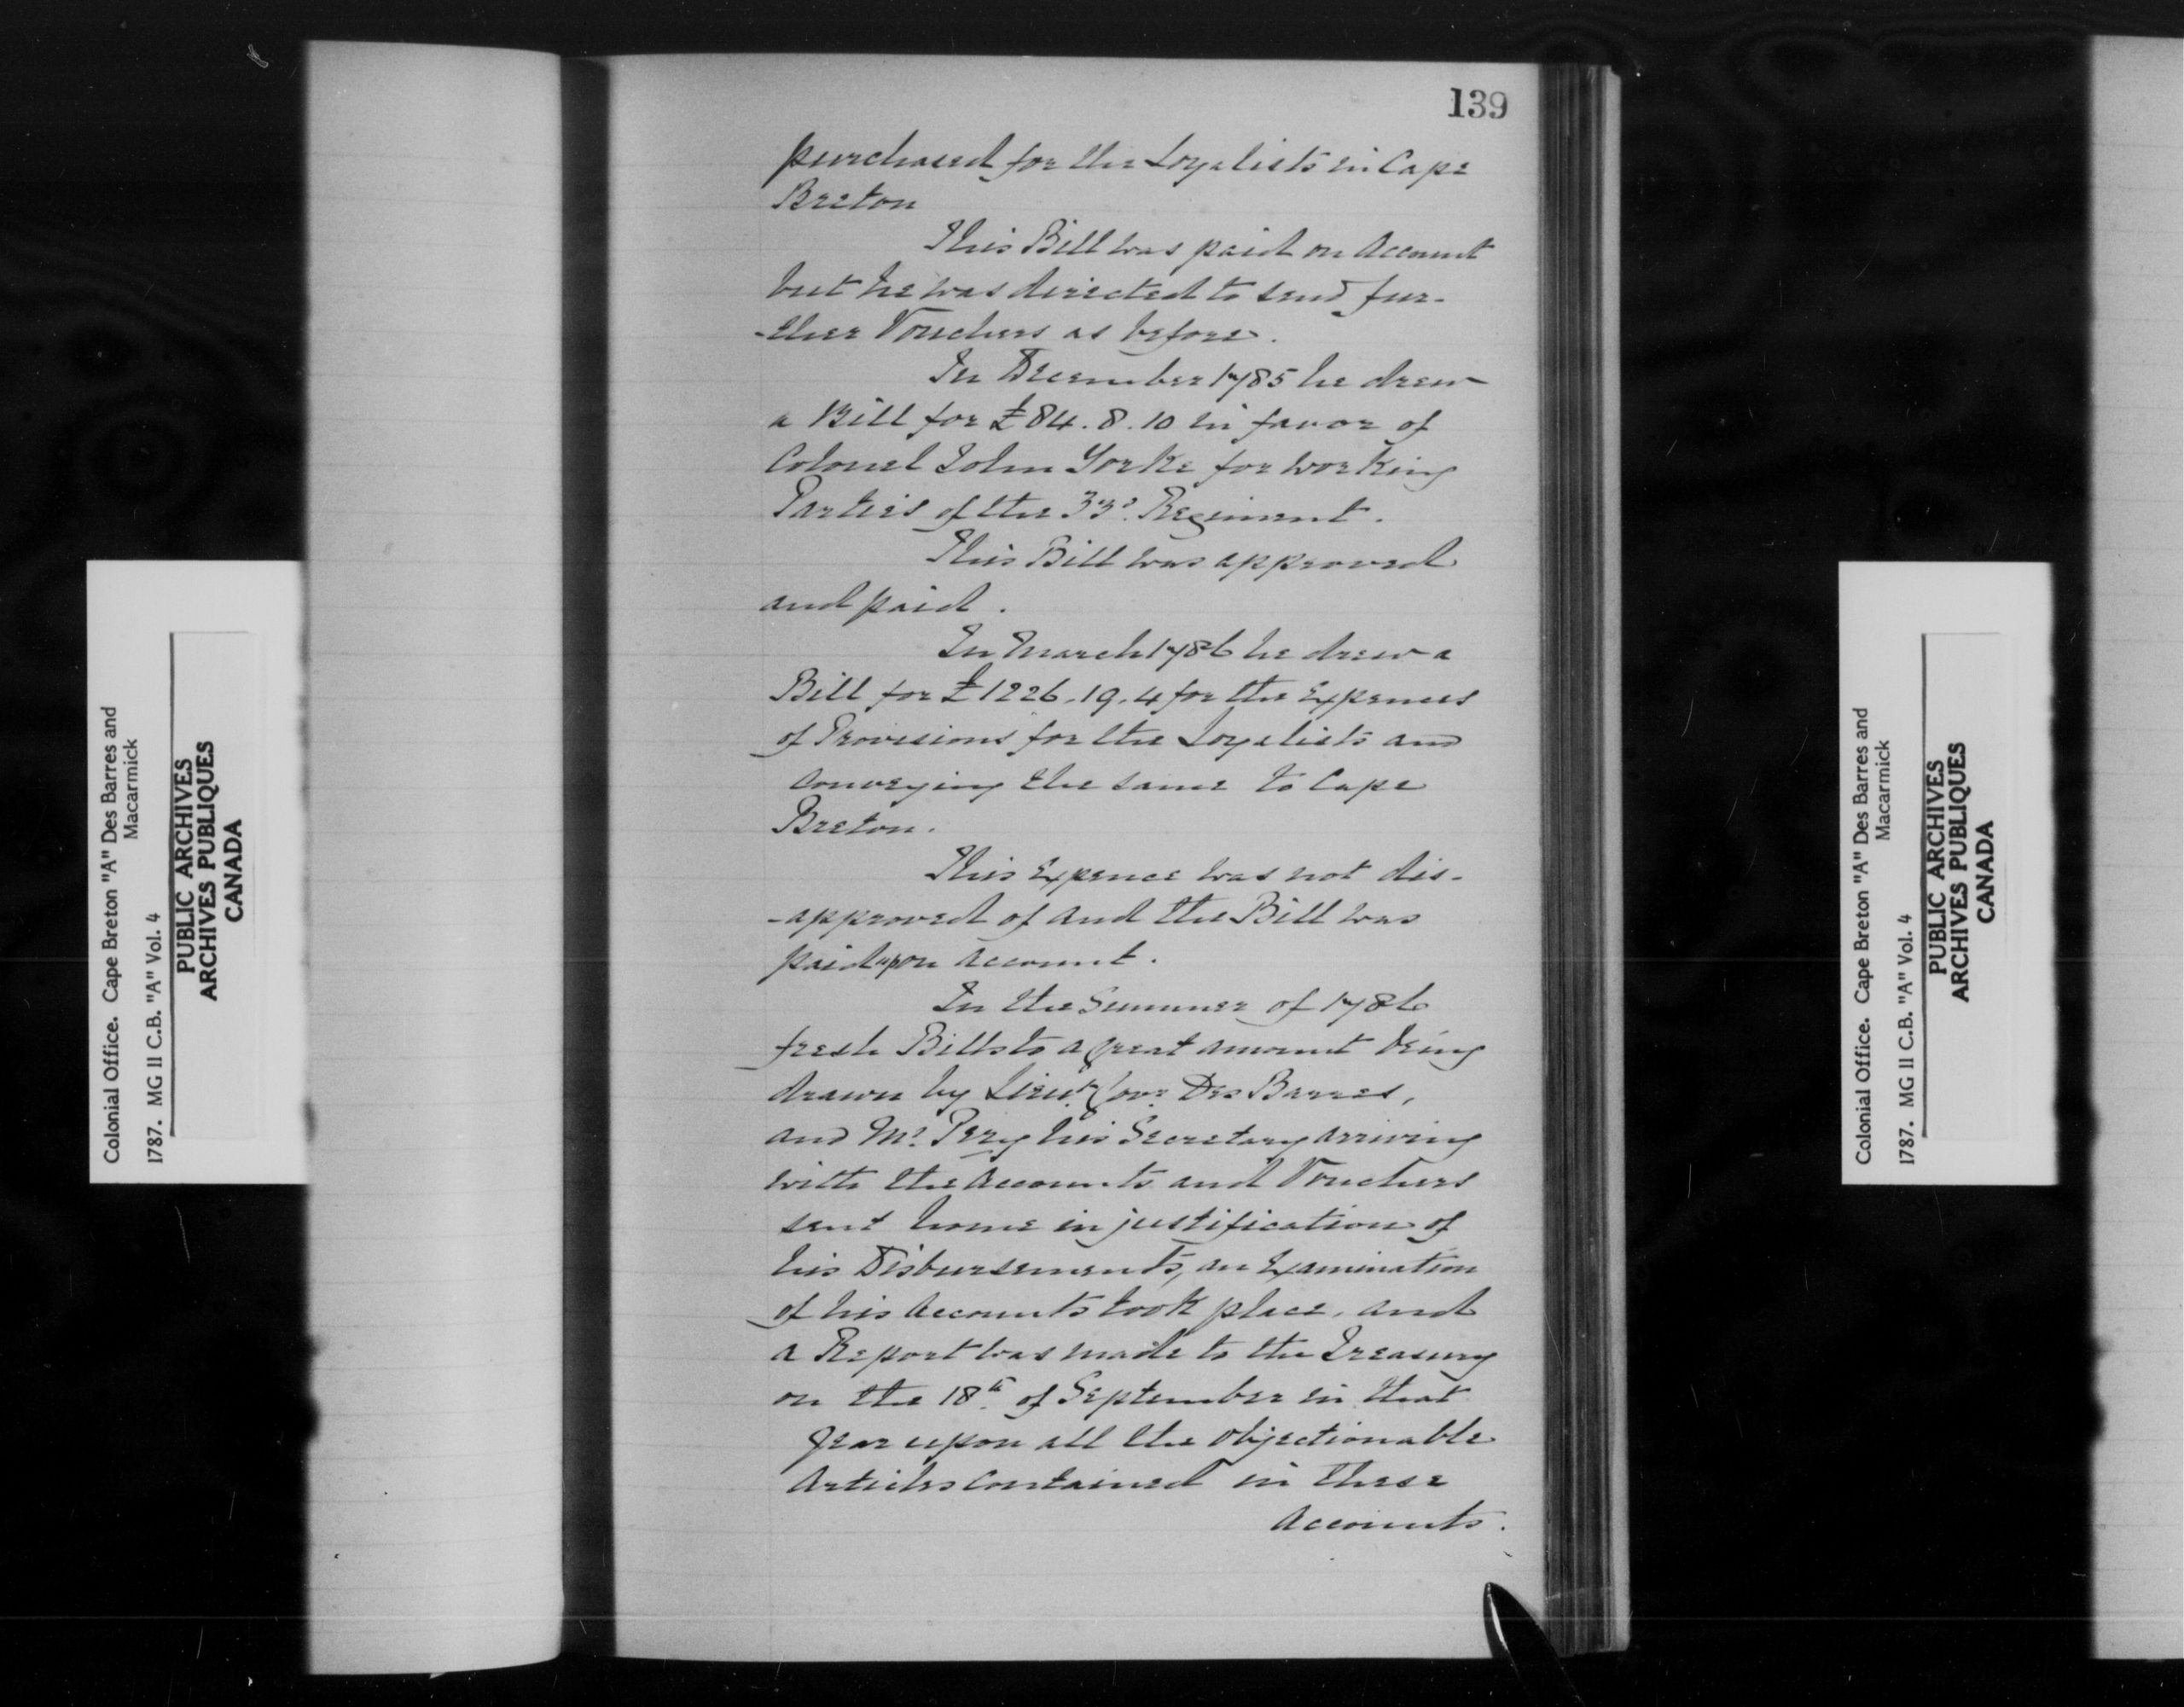 139
purchased for the Loyalists in Cape
Breton
This Bill was paid on Account
but he was directed to send fur-
-ther Vouchers as before.
In December 1785 he drew
a Bill for £84.8.10 in favor of
Colonel John Yorke for working
Parties of the 33d. Regiment.
This Bill was approved
and paid.
In March 1786 he drew a
Bill for £1226.19.4 for the Expences
of Provisions for the Loyalists and
conveying the same to Cape
Breton.
This Expence was not dis-
-approved of and the Bill was
paid upon Account.
In the Summer of 1786
fresh Bills to a great amount being
drawn by Lieut. Govr. Des Barres,
and Mr. Pery his Secretary arriving
with the Accounts and Vouchers
sent home in justification of
his Disbursements, an Examination
of his Accounts took place, and
a Report was made to the Treasury
on the 18th. of September in that
Year upon all the objectionable
Articles contained in these
Accounts.
Colonial Office. Cape Breton "A" Des Barres and
Macarmick
1787. MG II C.B. "A" Vol. 4
PUBLIC ARCHIVES
ARCHIVES PUBLIQUES
CANADA
Colonial Office. Cape Breton "A" Des Barres and
Macarmick
1787. MG II C.B. "A" Vol. 4
PUBLIC ARCHIVES
ARCHIVES PUBLIQUES
CANADA